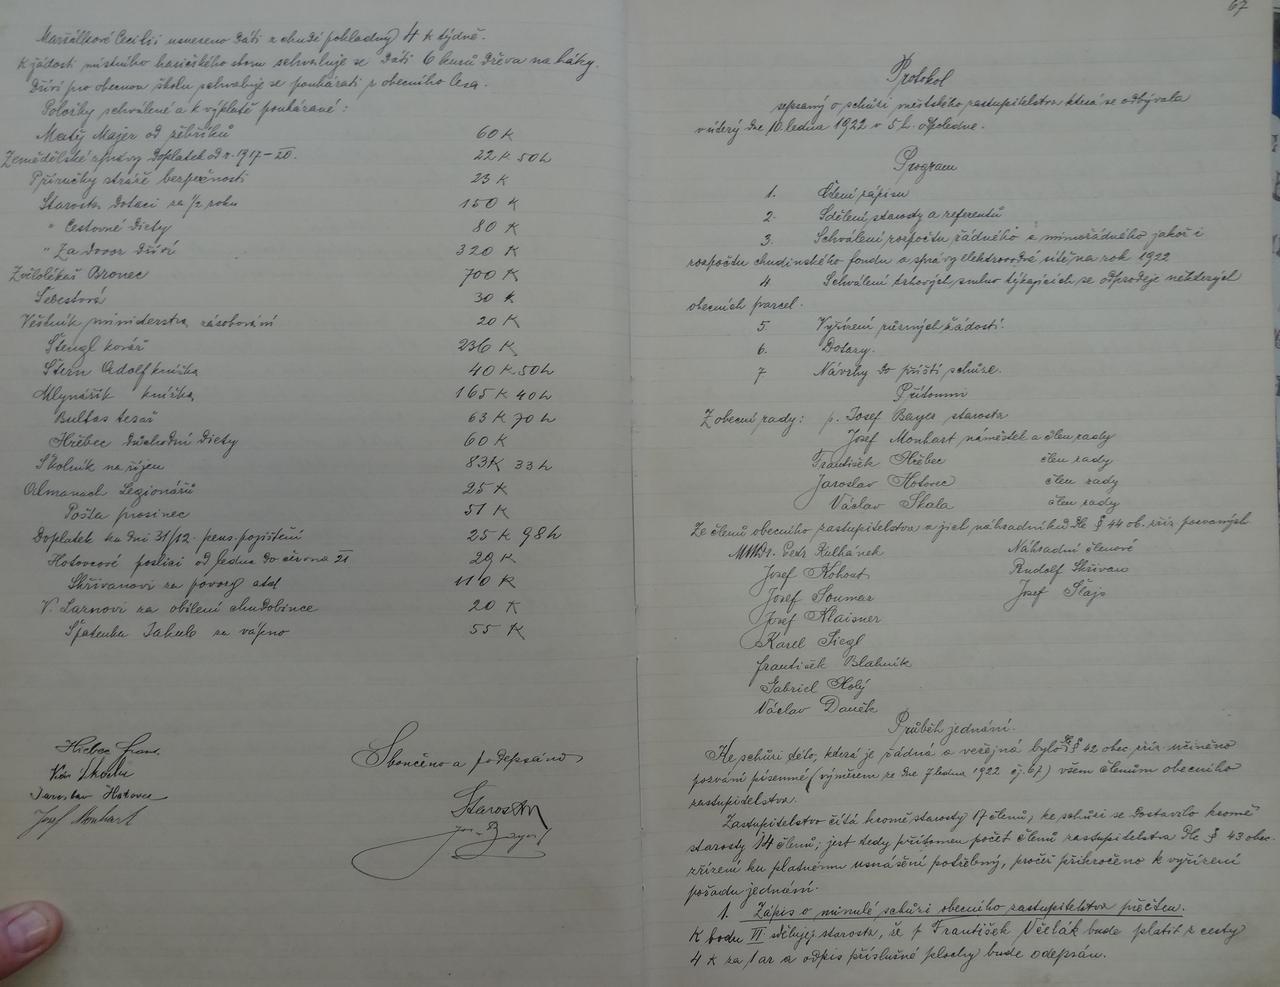 Maršálkové Cecilii usneseno dáti z chudé pokladny 4 K týdně.
K žádosti místního hasičského sboru schvaluje se dáti 6 kusů dřeva na háky.
Dříví pro obecnou školu schvaluje se poukázati z obecního lesa.
Položky schválené a k výplatě poukázané:
Matěj Majer od žebříků 60 K
Zemědělské zprávy doplatek od r. 1917–20. 22 K 50 h
Příručky stráže bezpečnosti 23 K
Starosta dotaci za 1/2 roku 150 K
" Cestovné diety 80 K
" Za dovoz dříví 320 K
Zvěrolékař Bronec 700 K
Šebestová 30 K
Věstník ministerstva zásobování 20 K
Štengl kovář 236 K
Štern Adolf knížka 40 K 50 h
Mlynařík knížka 165 K 40 h
Bultas tesař 63 K 70 h
Hřebec důchodní diety 60 K
Školník na říjen 83 K 33 h
Almanach Legionářů 25 K
Pošta prosinec 51 K
Doplatek ku dni 31/12. pens. pojištění 25 K 98 h
Hotovcové poslici od ledna do června 21 29 K
Skřivanovi za povozy atd 110 K
V. Larnovi za obílení chudobince 20 K
Špatenka Jakub za vápno 55 K
Skončeno a podepsáno
Hřebec Frant.
Václ. Skala
Jaroslav Hotovec
Josef Monhart
Starosta
Jos. Bayer
67
Protokol
sepsaný o schůzi městského zastupitelstva která se odbývala
v úterý dne 10. ledna 1922 v 5 h. odpoledne.
Program
1. Čtení zápisu
2. Sdělení starosty a referentů
3. Schválení rozpočtu řádného i mimořádného jakož i
rozpočtu chudinského fondu a správy elektrovodné sítě na rok 1922
4 Schválení trhových smluv týkajících se odprodeje některých
obecních parcel.
5. Vyřízení různých žádostí.
6. Dotazy.
7 Návrhy do příští schůze.
Přítomni
Z obecní rady: p. Josef Bayer starosta
Josef Monhart náměstek a člen rady
František Hřebec člen rady
Jaroslav Hotovec člen rady
Václav Skala člen rady
Ze členů obecního zastupitelstva a jich náhradníků dle § 44 ob. zříz. pozvaných
MUDr. Petr Kulhánek Náhradní členové
Josef Kohout Rudolf Skřivan
Josef Soumar Josef Šlajs
Josef Klaisner
Karel Siegl
František Blahník
Gabriel Holý
Václav Daněk
Průběh jednání.
Ke schůzi této, která je řádná a veřejná bylo dle § 42 obec. zříz. učiněno
pozvání písemné (výměrem ze dne 7 ledna 1922 čj. 67) všem členům obecního
zastupitelstva.
Zastupitelstvo čítá kromě starosty 17 členů, ke schůzi se dostavilo kromě
starosty 14 členů; jest tedy přítomen počet členů zastupitelstva dle § 43 obec.
zřízení ku platnému usnášení potřebný, pročež přikročeno k vyřízení
pořadu jednání.
1. Zápis o minulé schůzi obecního zastupitelstva přečten.
K bodu III sděluje starosta, že p František Včelák bude platit z cesty
4 K za 1 ar a odpis příslušné plochy bude odepsán.